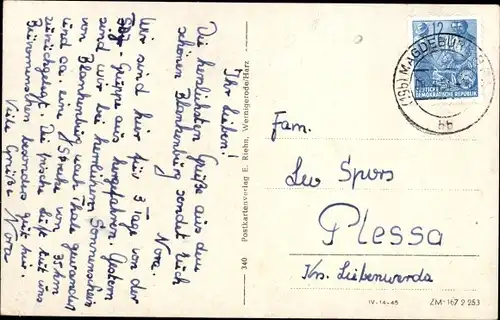 Ihr Lieben!
Die herzlichsten Grüße aus dem
schönen Blankenburg sendet Euch
Nora.
Wir sind hier für 3 Tage von der
FDJ-Gruppe aus hergefahren. Gestern
sind wir bei herrlichem Sonnenschein
von Blankenburg nach Thale gewandert
und ca. eine Strecke von 35 km
zurückgelegt. Die frische Luft tut uns
besonders gut hier.
Viele Grüße Nora
340 Postkartenverlag E. Riehn, Wernigerode/Harz
12
(19b) MAGDEBURG
bb
DEUTSCHE
DEMOKRATISCHE REPUBLIK
Fam.
Leo Spors
Plessa
Krs. Liebenwerda
IV-14-45 ZM 167 2 253